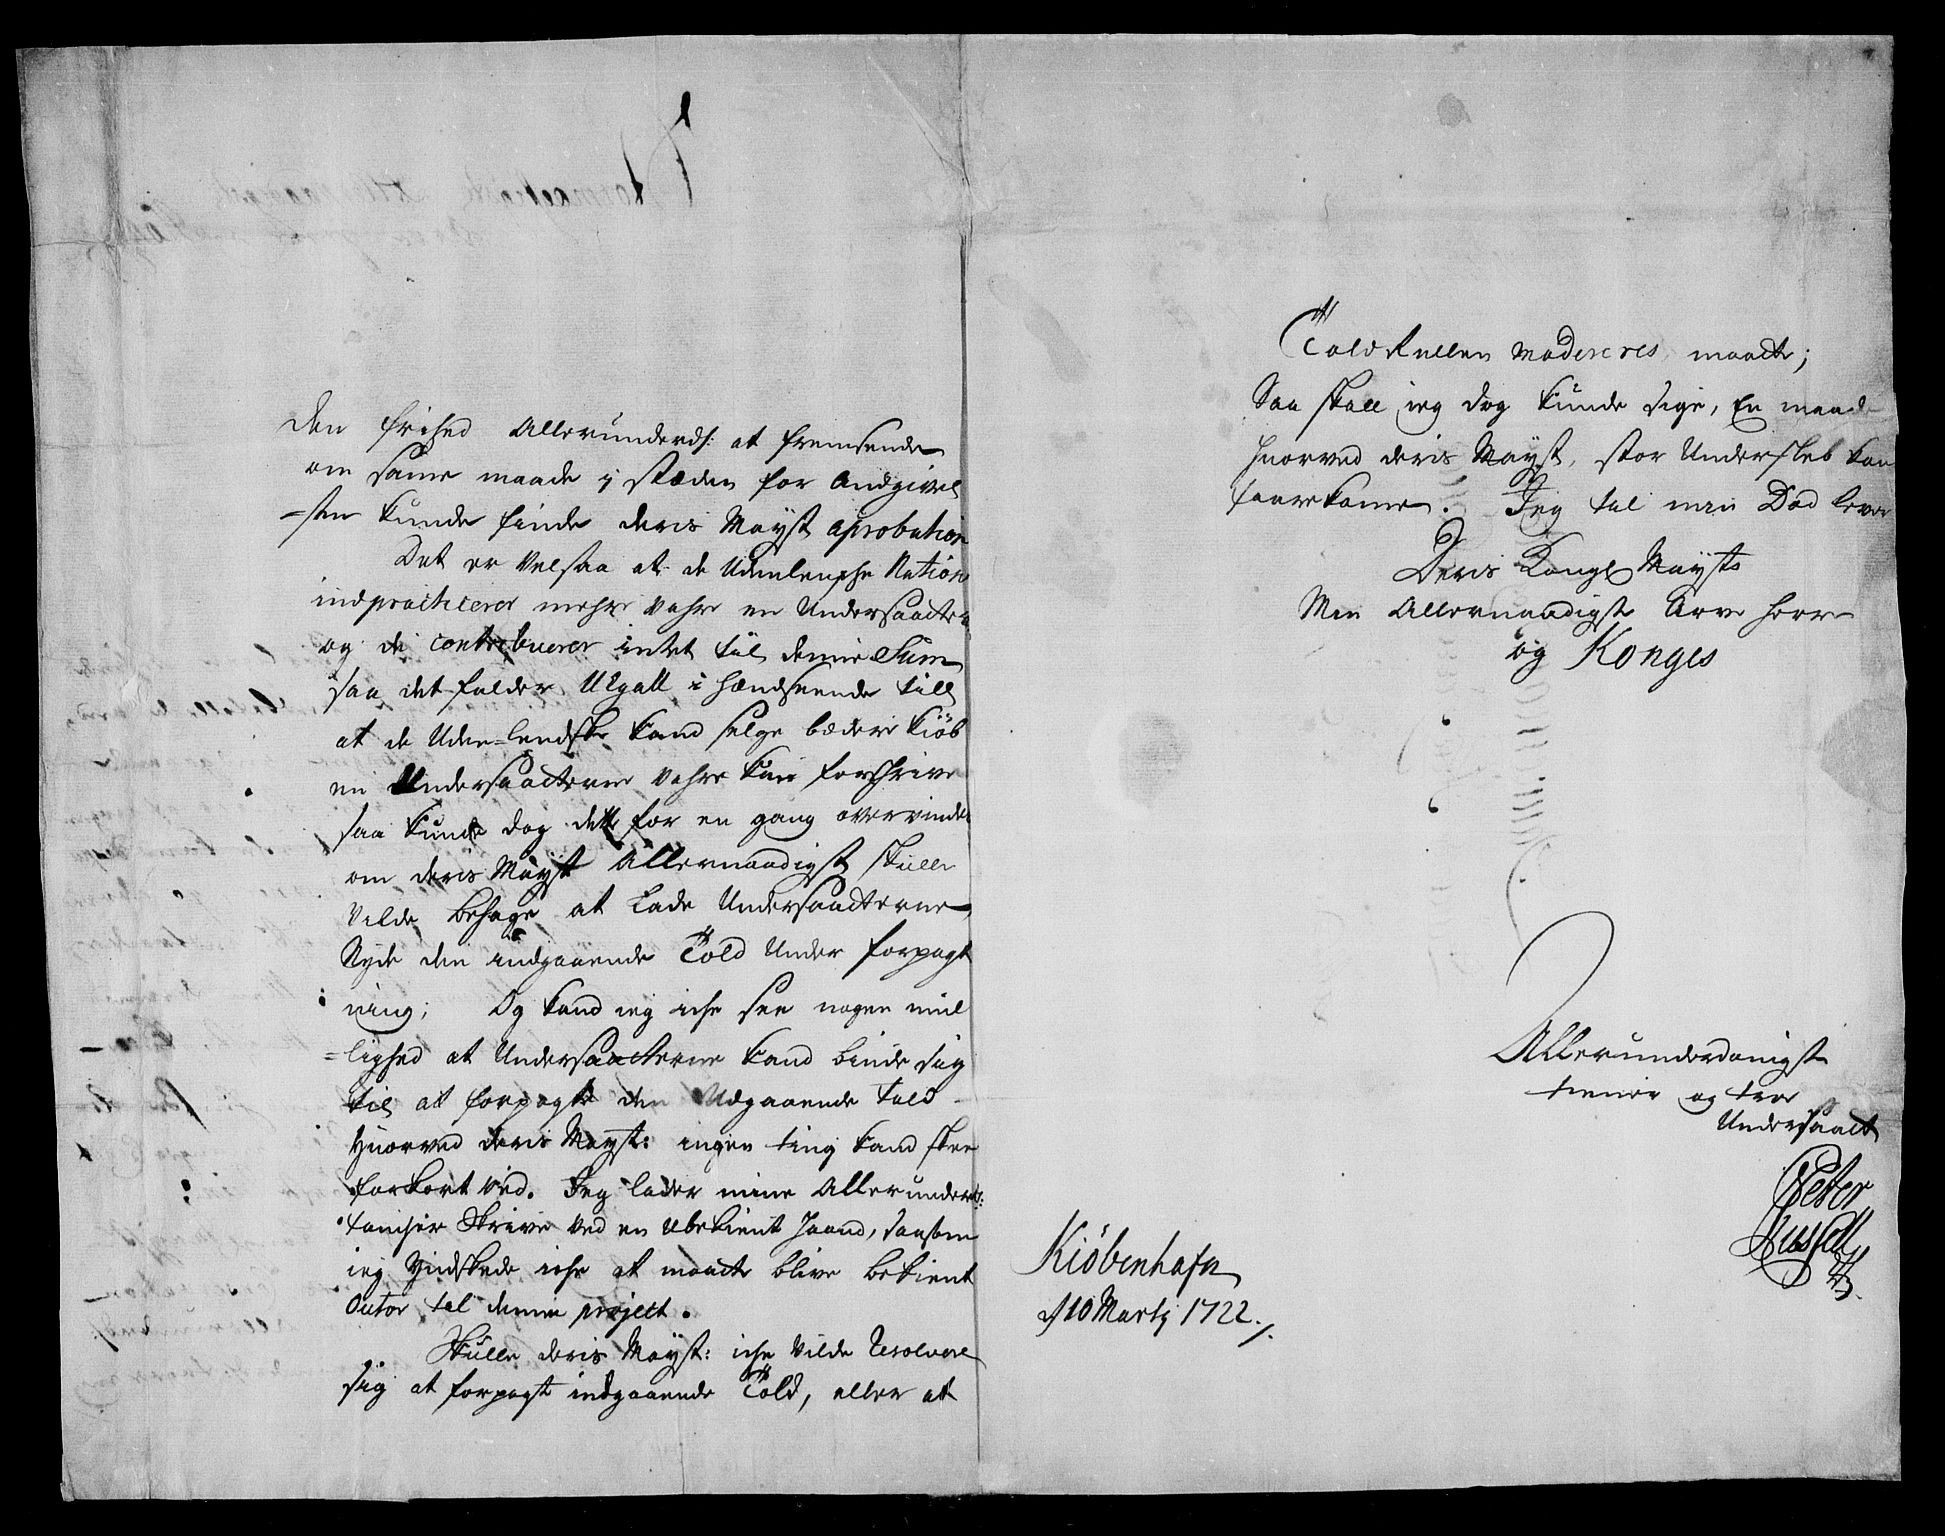 den frihed Allerunderd: at fremsende
om samme maade i stæden for Andgivel
=sen kunde finde deris Mayst aprobation
Det er Vel saa at de Udenlensche Nation
indpracticerer mehre Vahre en Undersaatter
og di contribuerer intet til denne Sum
saa det falder Ulgall i hendseende till
at de Uden=lendske kand selge bædere kiöb
en Undersaatterne Vahre kan forskrive
saa kunde dog dette for en gang overvinde
om deris Mayst Allernaadigst skulle
Vilde behage at Lade Undersaatterne
Nyde den indgaaende Told Under forpagt
ning; Og kand ieg iche see nogen mue
=lighed at Undersaatterne kand binde sig
til at forpagte den Udgaaende Told
Huorved deris Mayst: ingen ting kand skee
forkort ved. Jeg lader mine Allerunder:
tancher Skrive Ved en Ubekient Haand, saasom
ieg Yndskede iche at maatte blive bekient
Autor til denne project.
Skulle deris Mayst: iche Vilde Resolvere
sig at forpagte indgaaende Told, eller at
Told Rullen modereres maatte;
Saa skall ieg dog kunde sige, En maade
huorved deris Mayst, stor Undersleb kan
faarekomme. Jeg til min Död lever
Deris Kongl Maysts
Min Allernaadigste Arve Herre
og Konges
Allerunderdanigst
tiener og troe
Undersaatt
Peter
Kiöbenhafn
d 10 Martj 1722./.